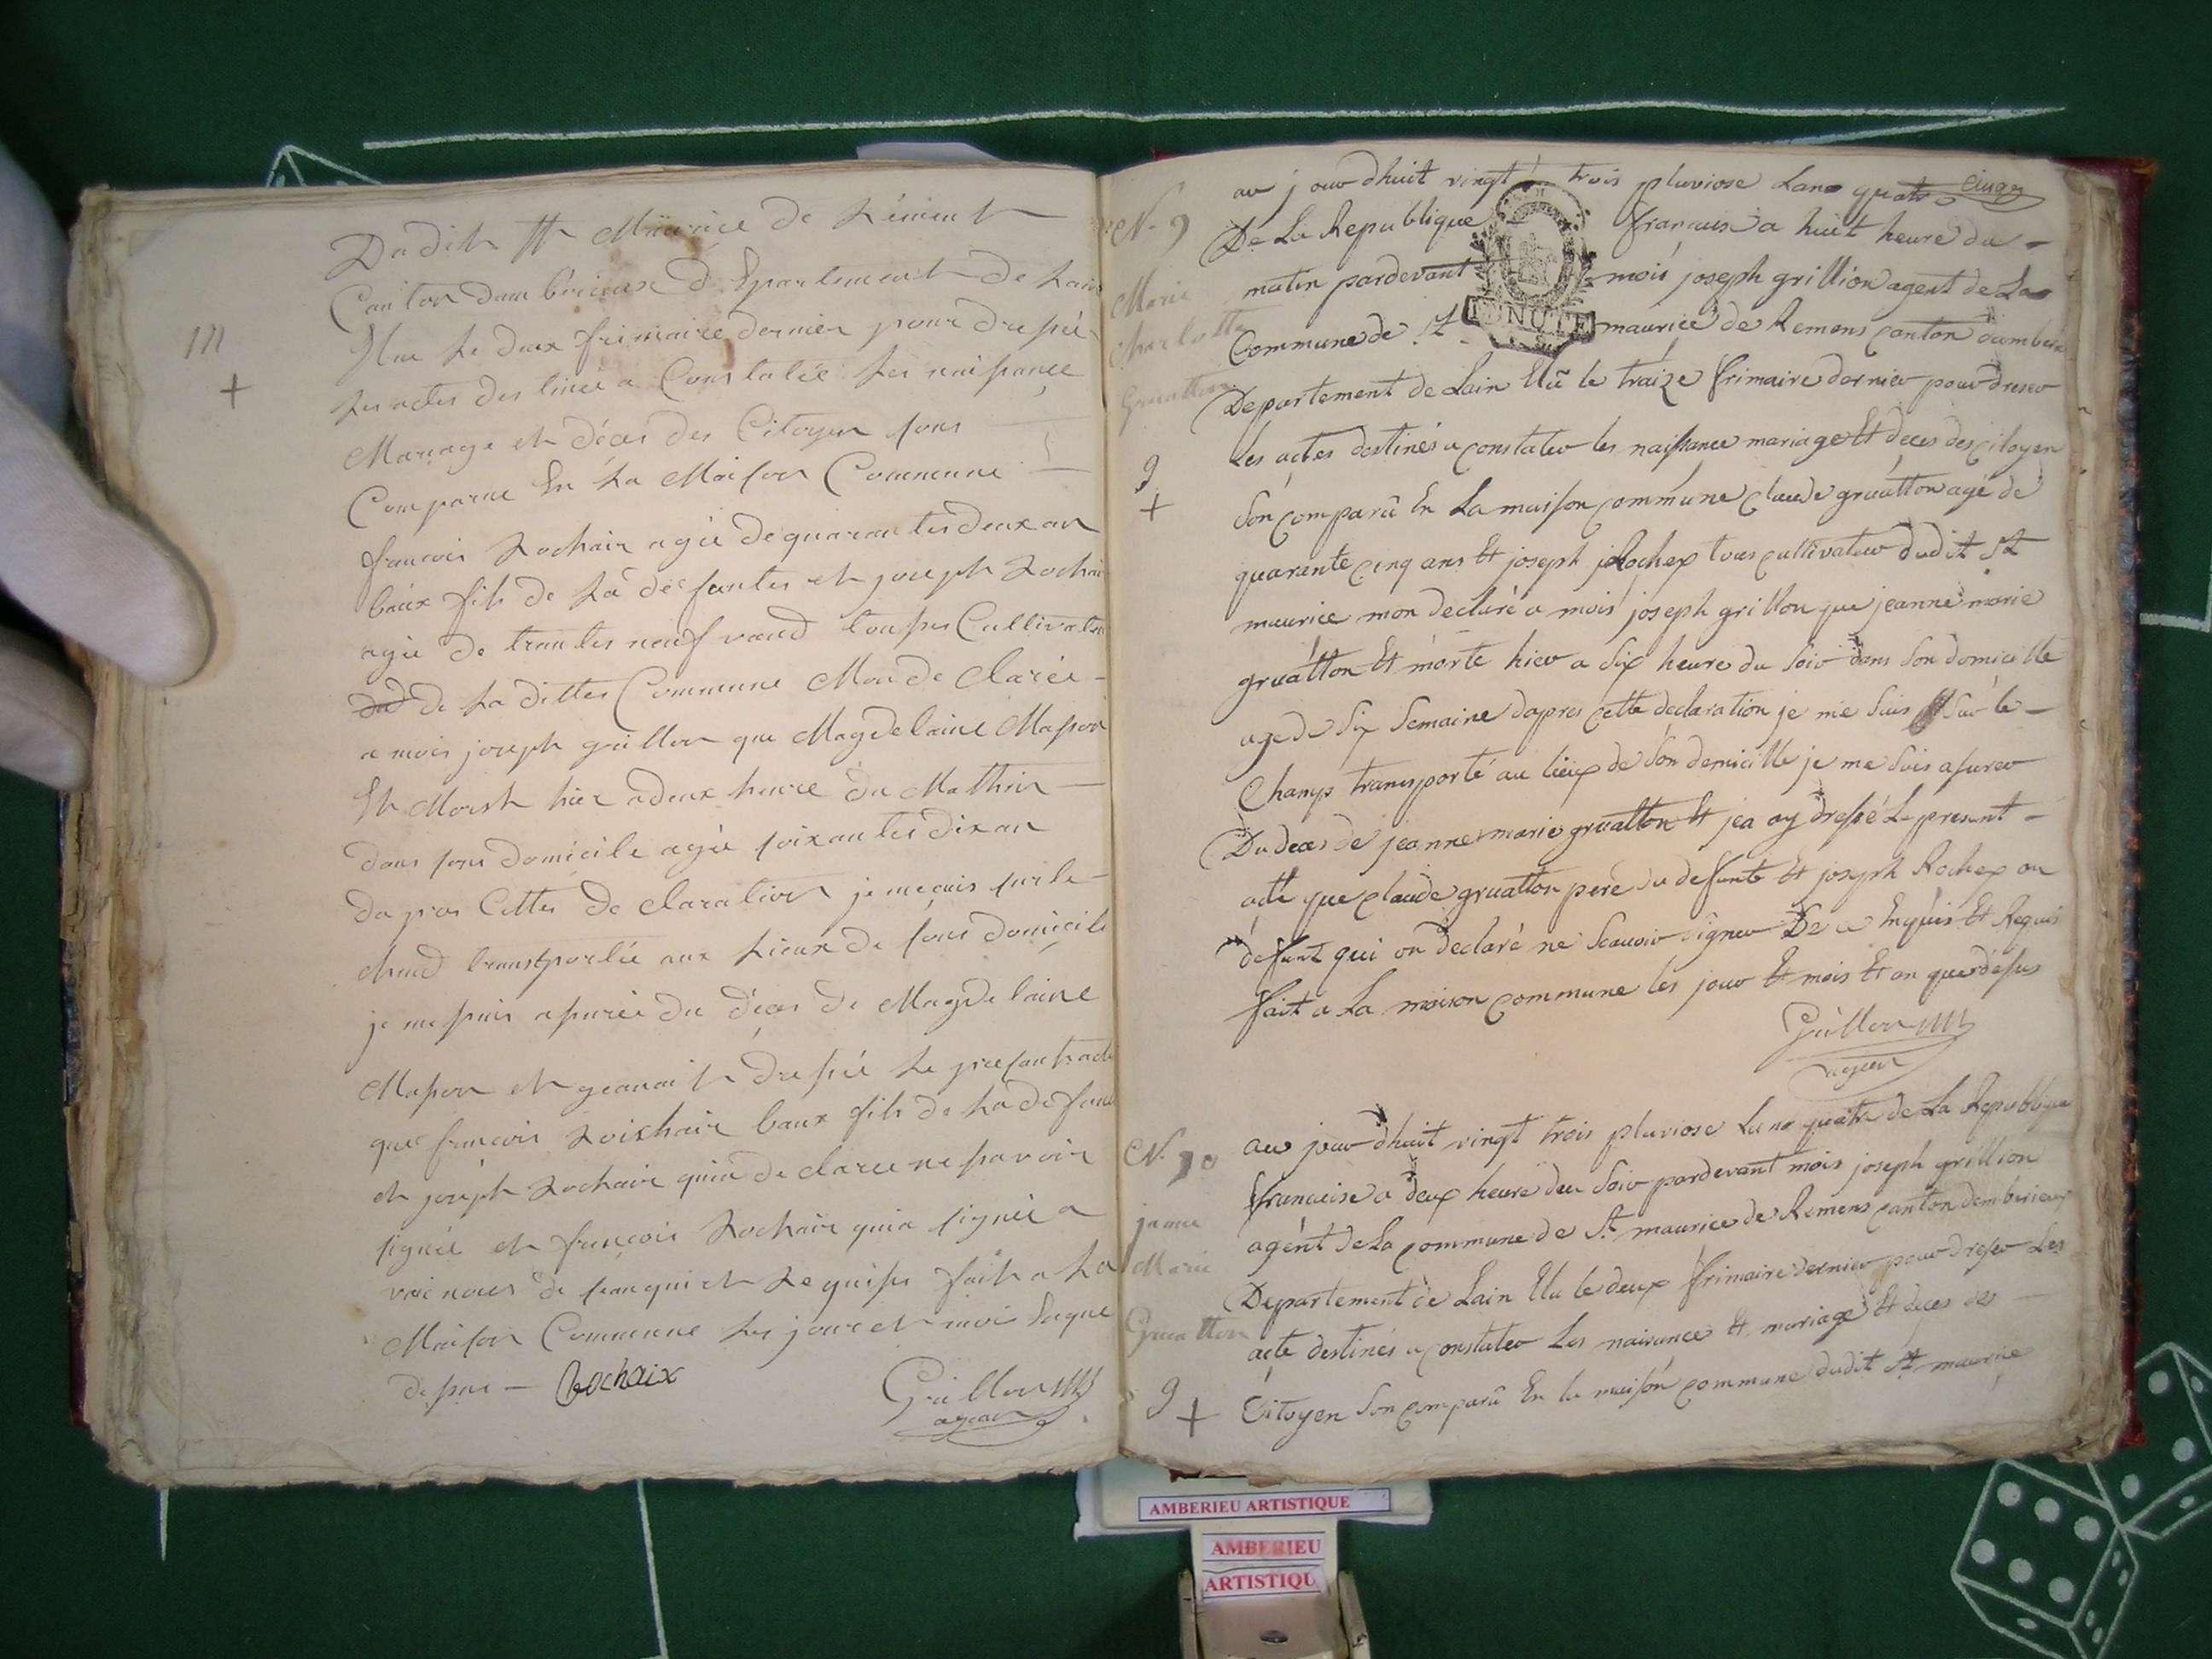 Dudit St Maurice de Rément
Canton dambérieux d Epartement de Lain
Elue Le deux frimaire dernier pour drepée
Les actes destinée a Constatée Les naissance
Mariage et déces des Citoyen sons
Comparue En La Maison Commune
111
+
francois Rochaix agée dequarantes deux an
baux fils de La défantes et joseph Rochaix
agée de trantes neuf tousses Cultivateur
de La dittes Commune Mon de Clarée
a mois joseph grillon que Magdelaine Masson
Et Morst hier adeux heure du Mathin
dans sons domicile agée soixantes dix an
da pres Cettes de Claration je me suis sur le
chand transtportée aux Lieux de sons domicile
je me suis asurée du déces de Magdelaine
Masson et dressée Le presant acte
que francois Rochaix baux fils de La defante
et joseph Rochaix quia de claree ne savoir
signée et françois Rochaix quia signée a
vec nous de Requises fait a La
Maison Commune Les jour et moi Eaque
desus — Rochaix
Grillon
agean
N. 9
Marie
charlotte
Gruatton
9
+
au jour dhuit vingt trois pluviose Lano quatre
De La Republique francaise a huit heure du
matin pardevant mois joseph grillion agent de La
Commune de St maurice de Remens canton dambérieux
Departement de Lain Elû le traize frimaire dernier pour dreser
Les actes destinés a constater les naissance mariage Et deces des citoyen
Son comparû En La maison commune claude gruatton agé de
quarante cinq ans Et joseph Rochex tous cultivateur dudit St
maurice mon declaré a mois joseph grillon que jeanne marie
gruatton Et morte hier a six heure du soir dans son domicille
age de six semaine dapres cette declaration je me suis sur le
Champs transporté au lieux de son domicille je me suis asurer
Du deces de jeanne marie gruatton Et jea ay dressé Le present
acte que claude gruatton pere du defunte Et joseph Rochex on
defunt qui on declaré ne Scauoir signer De ce Enquis Et Requis
fait a La maison commune les jour Et mois Et an que desus
Grillon
agean
N. 10
jeanne
Marie
Gruatton
9
+
au jour dhuit vingt trois pluviose Lano quatre de La Republique
francaise a deux heure du soir pardevant mois joseph grillion
agent de La commune de St maurice de Remens canton dambérieux
Departement de Lain Elu le deux frimaire dernier pour dreser Les
acte destinés a constater Les naisance Et mariage Et deces des
Citoyen Son comparû En la maison commune dudit St maurice
AMBERIEU ARTISTIQUE
AMBERIEU
ARTISTIQU